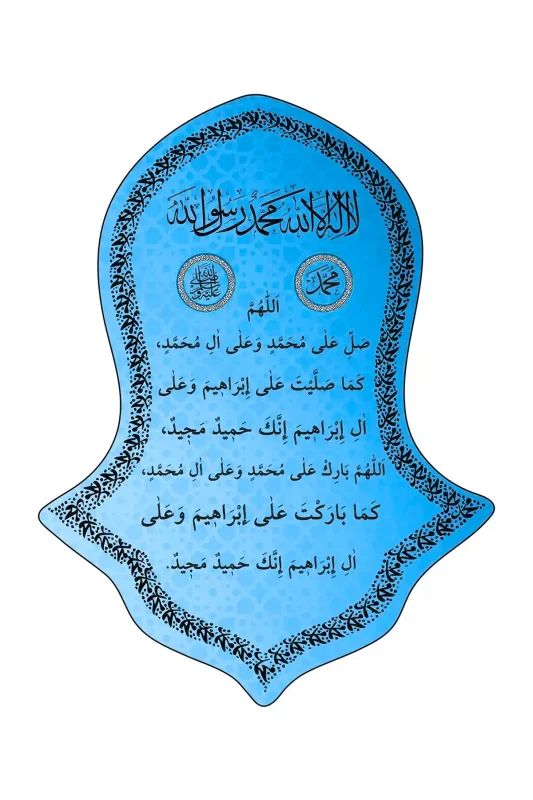 لا إله إلا الله محمد رسول الله
محمد
اَللّٰهُمَّ
صَلِّ عَلٰى مُحَمَّدٍ وَعَلٰى اٰلِ مُحَمَّدٍ،
كَمَا صَلَّيْتَ عَلٰى إِبْرَاهِيمَ وَعَلٰى
اٰلِ إِبْرَاهِيمَ إِنَّكَ حَمِيدٌ مَجِيدٌ،
اَللّٰهُمَّ بَارِكْ عَلٰى مُحَمَّدٍ وَعَلٰى اٰلِ مُحَمَّدٍ،
كَمَا بَارَكْتَ عَلٰى إِبْرَاهِيمَ وَعَلٰى
اٰلِ إِبْرَاهِيمَ إِنَّكَ حَمِيدٌ مَجِيدٌ.